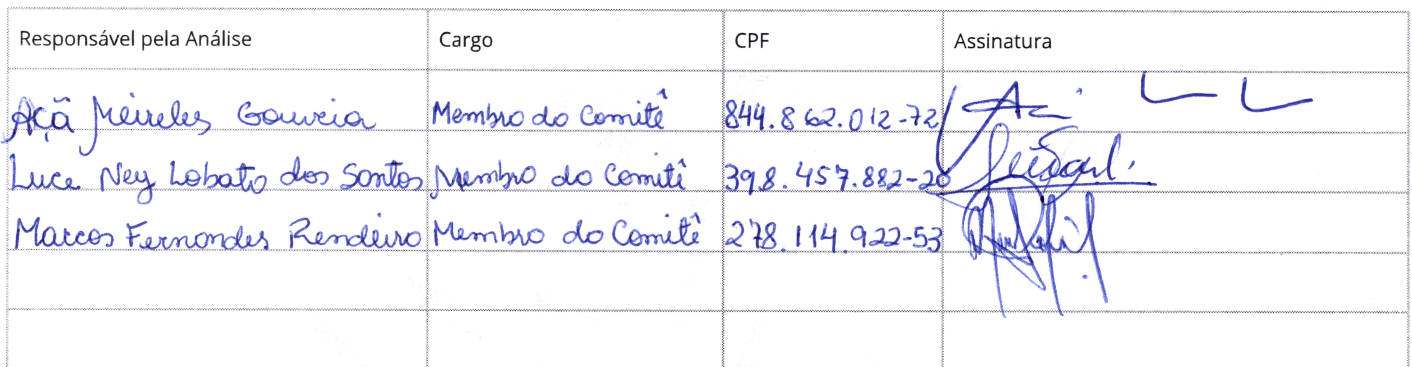 Responsável pela Análise Cargo CPF Assinatura
Açã Meireles Gouveia Membro do Comitê 844.862.012-72
Luce Ney Lobato dos Santos Membro do Comitê 398.457.882-20
Marcos Fernandes Rendeiro Membro do Comitê 278.114.922-53